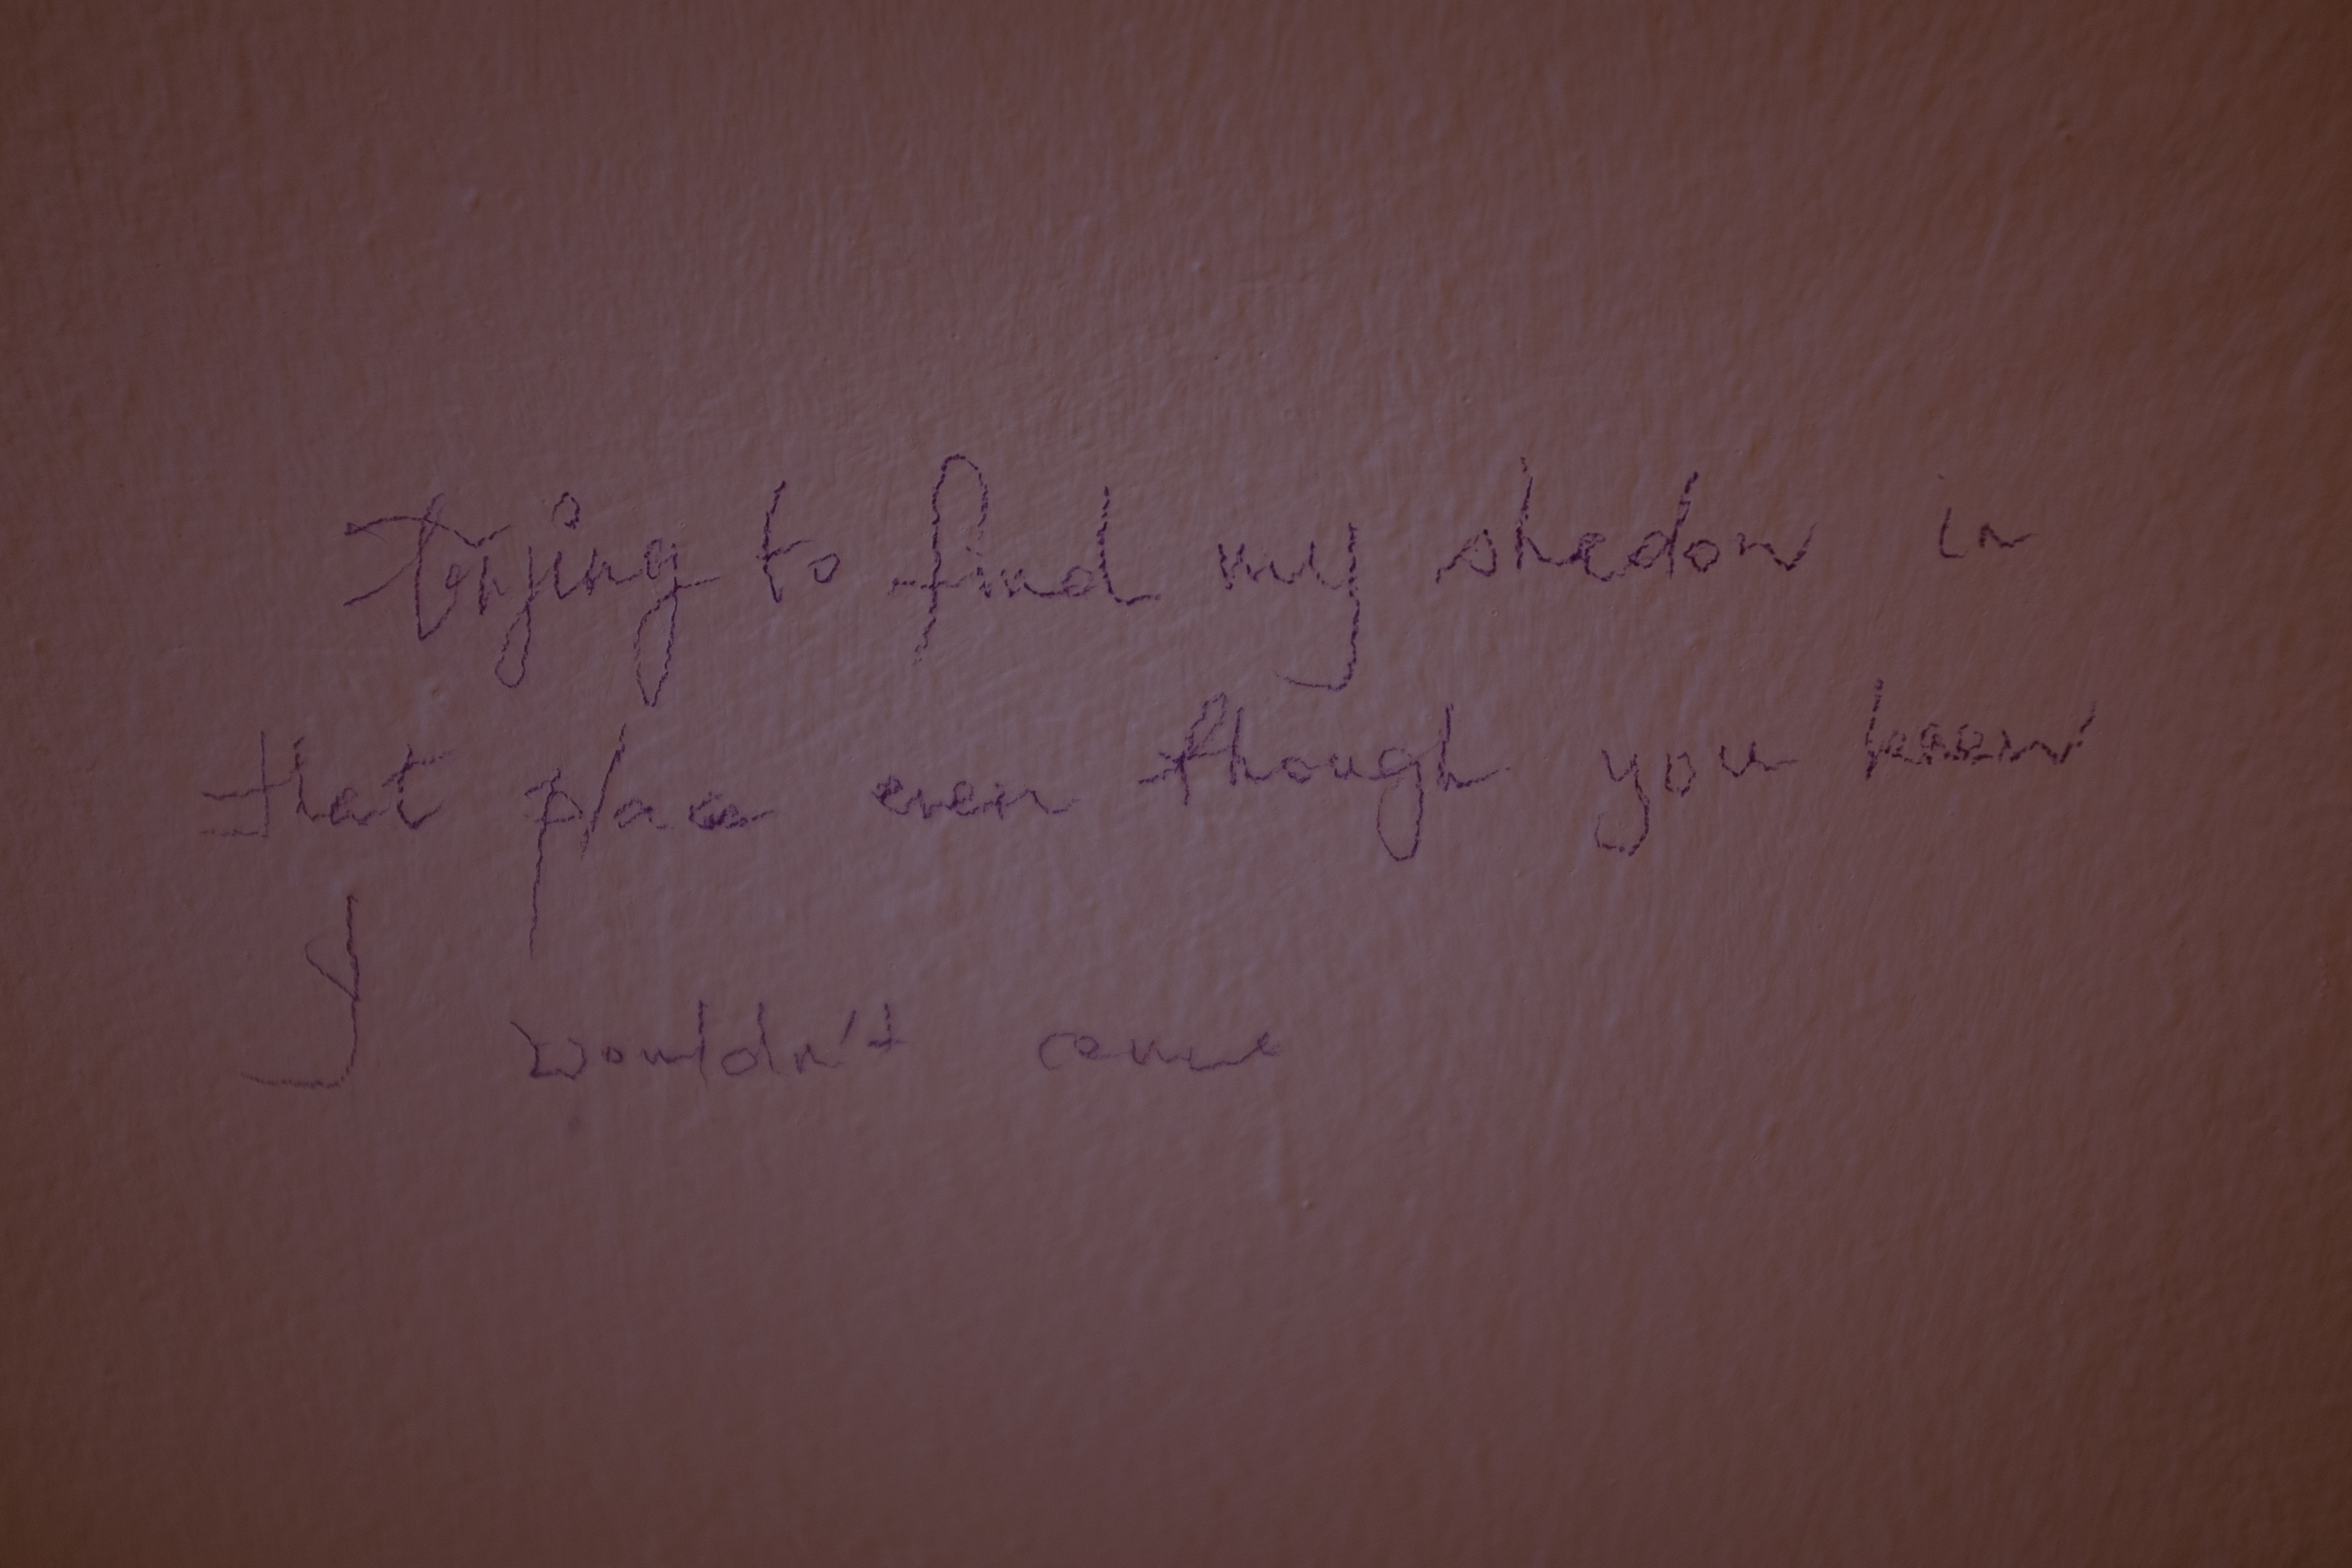 trying to find my shadow in
that place even though you know
I wouldn't come